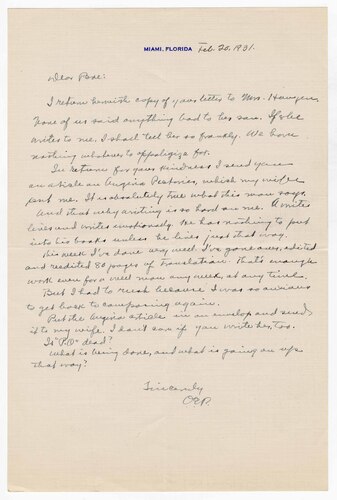 MIAMI, FLORIDA Feb. 20, 1931.
Dear Boxe:
I return herewith copy of your letter to Mrs. Hansen,
None of us said anything bad to her son. If she
writes to me, I shall tell her so frankly. We have
nothing whatever to appoligize for.
In return for your kindness I send you
an article on Angina Pectories, which my wife
sent me. It is absolutely true what this man says.
And that is why writing is so hard on me. A writer
lives and writes emotionally. He has nothing to put
into his books unless he lives just that way.
This week I've done very well. I've gone over, edited
and reedited 80 pages of translation. That's enough
work even for a well man any week, at any time.
But I had to rush because I was so anxious
to get back to composing again.
Put the Angina article in an envelop and send
it to my wife. I don't care if you write her, too.
Is "P.O" dead?
What is being done, and what is going on up
that way?
Sincerely
OER.